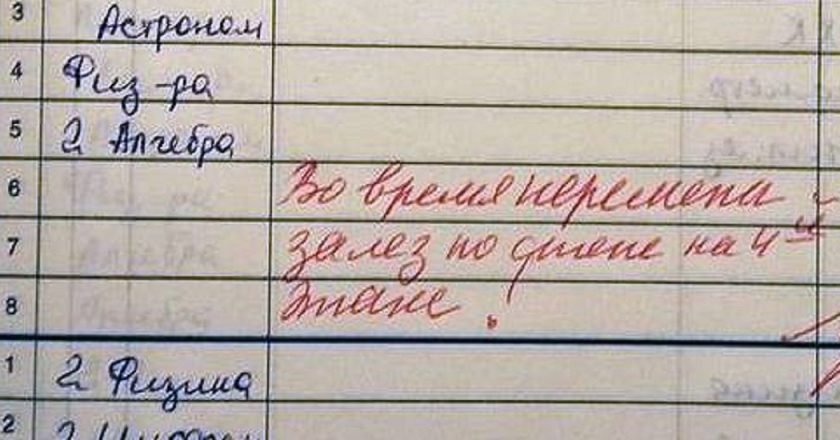 3 Астроном
4 Физ-ра
5 2 Алгебра
6 Во время перемены
7 залез по стене на 4 ый
8 этаж !
1 2 Физика
2 2